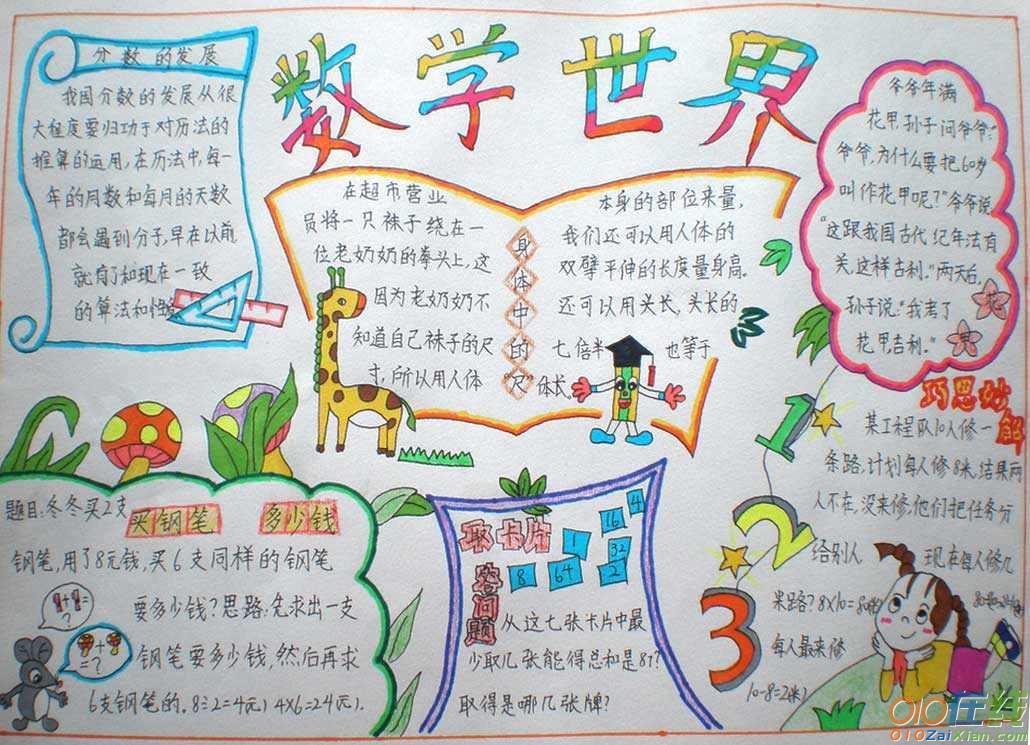 数学世界
分数的发展
我国分数的发展从很
大程度要归功于对历法的
推算的运用,在历法中,每一
年的周数和每月的天数
都会遇到分子,早在以前
就有了和现在一致
的算法和
在超市营业
员将一只袜子绕在一
位老奶奶的拳头上,这
因为老奶奶不
知道自己袜子的尺
寸,所以用人体
身体中的“尺”
本身的部位来量,
我们还可以用人体的
双臂平伸的长度量身高。
还可以用头长,头长的
七倍半 也等于
体长。
爷爷年满
花甲,孙子问爷爷:“
爷爷,为什么要把60岁
叫作花甲呢?”爷爷说
“这跟我国古代纪年法有
关,这样吉利。”两天后,
孙子说:“我考了
花甲,吉利。”
花甲
巧思妙解
某工程队10人修一
条路,计划每人修8米,结果两
人不在,没来修,他们把任务分
给别人 现在每人修几
米路?8×10=80
每人最来修
10-8=2(米)
1
2
3
买钢笔 多少钱
题目:冬冬买2支
钢笔,用了8元钱,买6支同样的钢笔
要多少钱?思路:先求出一支
钢笔要多少钱,然后再求
6支钢笔的。8÷2=4(元) 4×6=24(元).
+ = ?
+ = ?
取卡片
答问题
1 16 4
8 64 32
2
从这七张卡片中最
少取几张能得总和是87?
取得是哪几张牌?
010在线
010ZaiXian.com